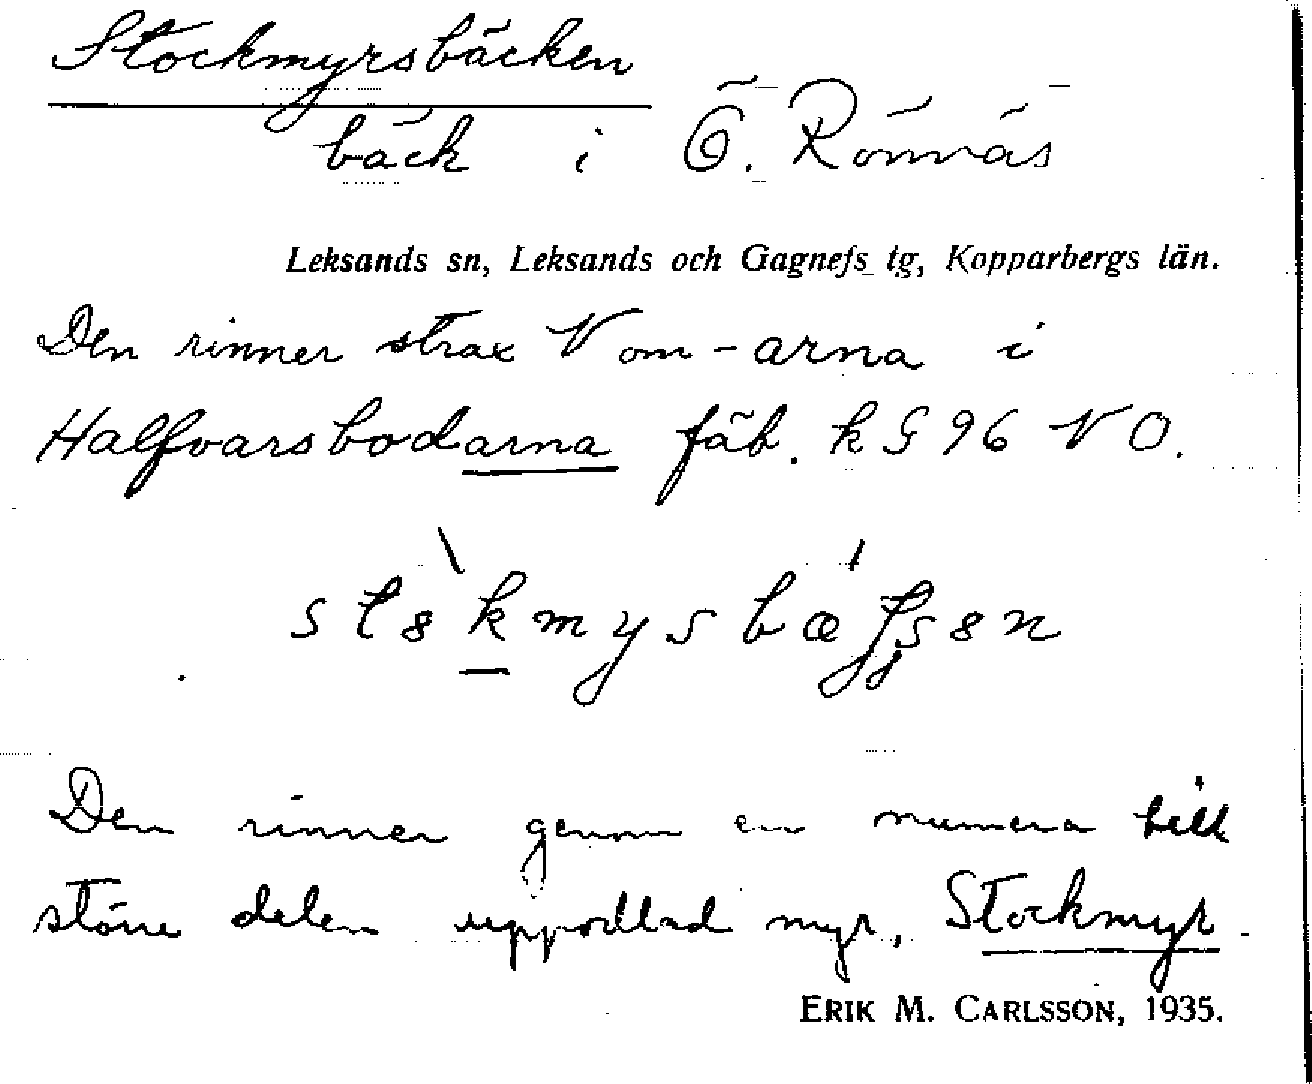 Stockmyrsbäcken
bäck i Ö. Rönnäs
Leksands sn, Leksands och Gagnefs tg, Kopparbergs län.
Den rinner strax V om -arna i
Halfvarsbodarna fäb. k G 96 NO.
Den rinner genom en numera till
större delen uppodlad myr, Stockmyr
ERIK M. CARLSSON, 1935.